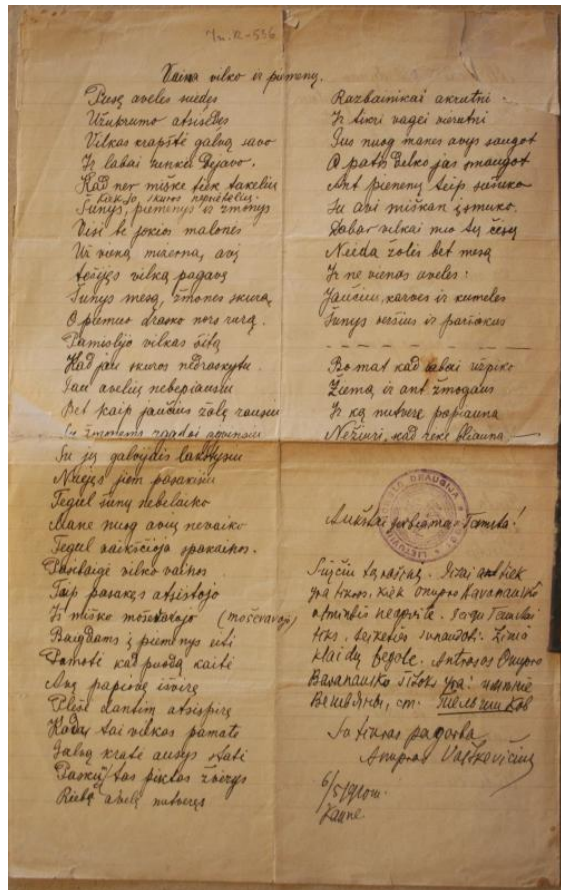 Vaina vilko ir piemenų.
Pusę avelės suėdęs
Užukrumo atsisėdęs
Vilkas krapštė galvą savo
Ir labai sunkei dejavo.
Kad ner miške tiek takelių
Kaip skuros neprietelių
Šunys, piemenys ir žmonys
Visi be jokios malonės
Už vieną mizerną, avį
vilką pagavę
Šunys mesą, žmones skurą,
O piemuo drasko noro
Pamislyjo vilkas šitą
Kad jau skuros nedraskytu
Jau avelių nebepiausiu
Bet kaip jaučius žolę rausiu
Su žmonems
Su jų galvijais lakstysiu
Nuejęs jiem pasakisiu
Tegul šunų nebelaiko
Mane nuog avių nevaiko
Tegul vaikščioja spakainos.
Pasibaigė vilko vainos
Taip pasakęs atsistojo
Ir miško (močevavojo)
Baigdams į piemenys eiti
Pamatė kad puodą kaiti
Avų papiovę išvirę
Plėšė dantim atsispirę
Kada tai vilkas pamatė
Galvą kratė ausys statė
Paskui tas piktas žvėrys
Riebę avelę nutvėręs
Razbainikai akrutni
Ir tikri vagei varutni
Jus nuog manes avys saugot
O patis vilko jas smaugot
Ant piemenų teip sušuko
Su avi miškan įsmuko.
Dabar vilkai nuo tų čėsų
Neėda žolės bet mesą
Ir ne vienas aveles:
Jaučius, karves ir kumeles
Šunys veršius ir paršiukus
Bo mat kad labai užpiko
Žiemą ir ant žmogaus
Ir ką nutverę papiauna
Nežiuri, kad rėkę bliauna
Aukštai gerbiamas Tamsta!
Siųčiu tą raštą. Jizai tiek
yra tikras, kiek Onupro Bavanausko
atmintis neapvilė. Jeigu Tamstai
tiks, teiksitės sunaudoti. Žinia
klaidų begalė. Antrosos Onupro
yra: имѣніе
ст. Тельши Ков
Su tikrosa pagarba
Onupras Vaškovičius
6/5/910m.
Kaune